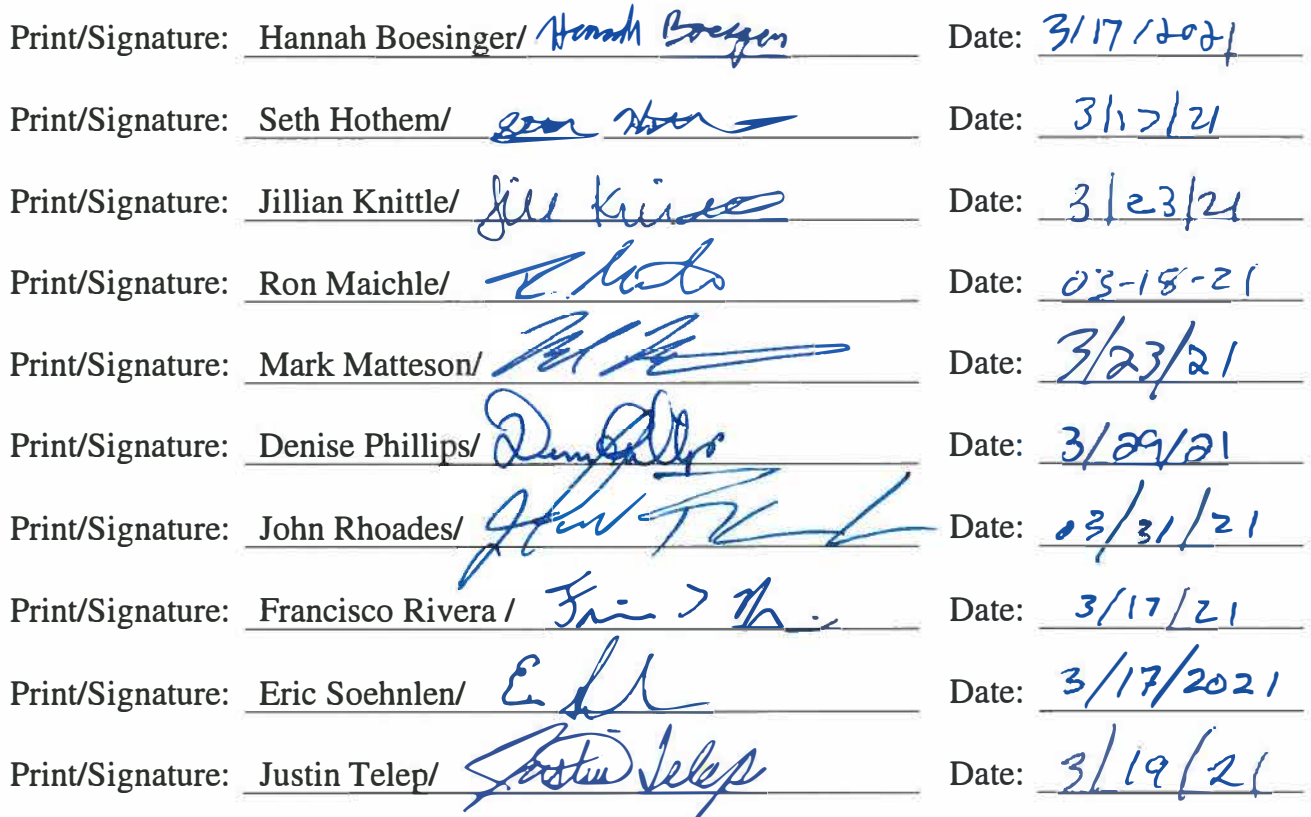 Print/Signature: Hannah Boesinger/ Hannah Date: 3/17/2021
Print/Signature: Seth Hothem/ Date: 3/17/21
Print/Signature: Jillian Knittle/ Jill Date: 3/23/21
Print/Signature: Ron Maichle/ R. Date: 03-18-21
Print/Signature: Mark Matteson/ Date: 3/23/21
Print/Signature: Denise Phillips/ Date: 3/29/21
Print/Signature: John Rhoades/ Date: 03/31/21
Print/Signature: Francisco Rivera / Date: 3/17/21
Print/Signature: Eric Soehnlen/ Date: 3/17/2021
Print/Signature: Justin Telep/ Justin Telep Date: 3/19/21